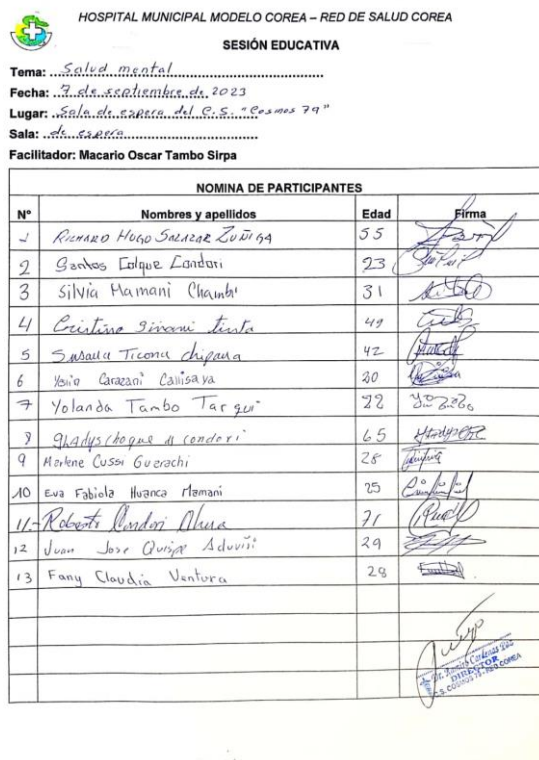 HOSPITAL MUNICIPAL MODELO COREA – RED DE SALUD COREA
SESIÓN EDUCATIVA
Tema: Salud mental
Fecha: 7 de septiembre de 2023
Lugar: Sala de espera del C.S. "Cosmos 79"
Sala: de espera
Facilitador: Macario Oscar Tambo Sirpa
NOMINA DE PARTICIPANTES
Nº Nombres y apellidos Edad Firma
1 RICHARD HUGO SALAZAR ZUÑIGA 55
2 Santos Colque Condori 23
3 Silvia Mamani Chambi 31
4 Cristina Sinani tinta 49
5 Susana Ticona chipana 42
6 Carazani Callisaya 20
7 Yolanda Tambo Tarqui 22
8 gladys choque d condori 65
9 Marlene Cussi Guarachi 28
10 Eva Fabiola Huanca Mamani 25
11.- Roberto Condori 71
12 Juan Jose Quispe Aduviri 29
13 Fany Claudia Ventura 28
DIRECTOR